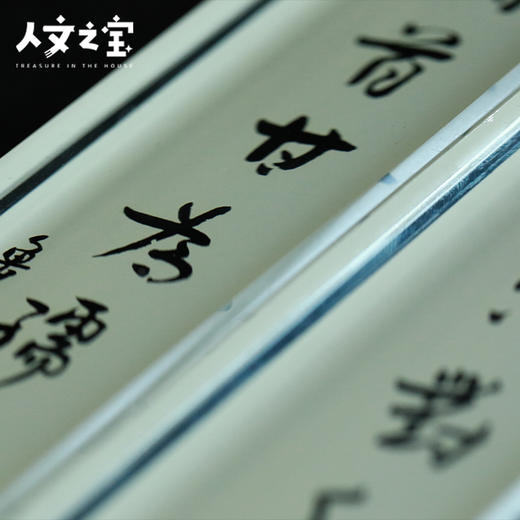 人文之宝
TREASURE IN THE HOUSE
對
首甘为孺
魯